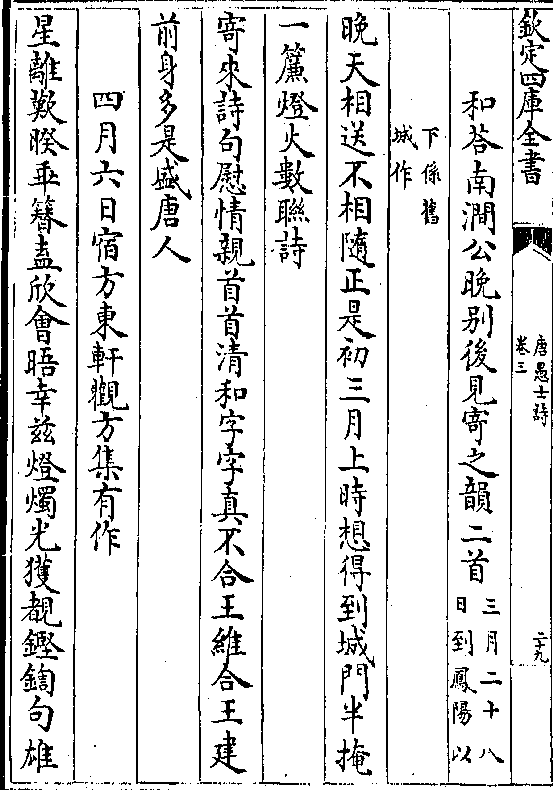 欽定四庫全書
唐愚士詩
卷三
二十九
和答南澗公晚别後見寄之韻二首
三月二十八
日到鳳陽以
下係舊
城作
晚天相送不相隨正是初三月上時想得到城門半掩
一簾燈火數聯詩
寄來詩句慰情親首首清和字字真不合王維合王建
前身多是盛唐人
四月六日宿方東軒觀方集有作
星離歎睽乖簪盍欣會晤幸兹燈燭光獲覩鏗鍧句雄